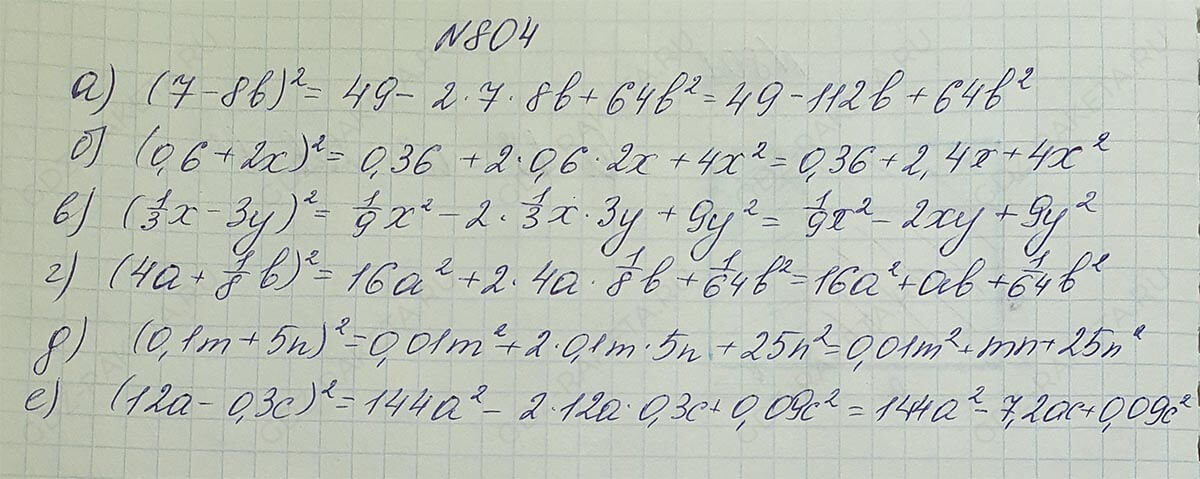 N804
а) (7-8b)² = 49 - 2·7·8b + 64b² = 49 - 112b + 64b²
б) (0,6 + 2x)² = 0,36 + 2·0,6·2x + 4x² = 0,36 + 2,4x + 4x²
в) (1/3x - 3y)² = 1/9x² - 2·1/3x·3y + 9y² = 1/9x² - 2xy + 9y²
г) (4a + 1/8b)² = 16a² + 2·4a·1/8b + 1/64b² = 16a² + ab + 1/64b²
д) (0,1m + 5n)² = 0,01m² + 2·0,1m·5n + 25n² = 0,01m² + mn + 25n²
е) (12a - 0,3c)² = 144a² - 2·12a·0,3c + 0,09c² = 144a² - 7,2ac + 0,09c²